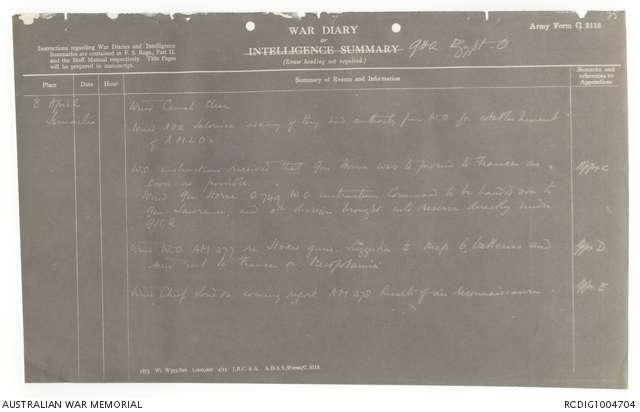 WAR DIARY
or
INTELLIGENCE SUMMARY
(Erase heading not required.)
Army Form C. 2118
Instructions regarding War Diaries and Intelligence
Summaries are contained in F. S. Regs., Part II.
and the Staff Manual respectively. Title Pages
will be prepared in manuscript.
Place Date Hour Summary of Events and Information Remarks and
references to
Appendices
8 April Wired Canal Clear
Ismailia Wired Salonica saying they had authority from W.O for establishment
of A.M.L.O's
W.O instructions received that Gen Horne was to proceed to France as Appx C
soon as possible.
Wired Gen Horne O 749 W.O instructions Command to be handed over to
Gen Lawrence, and division brought into reserve directly under
GHQ
Wired W.O AM 277 re guns. Suggestion to keep 6 batteries and Appx D
send rest to France or Mesopotamia
Wired Chief London evening report AM 278 Result of air reconnaissance. Appx E
AUSTRALIAN WAR MEMORIAL
RCDIG1004704